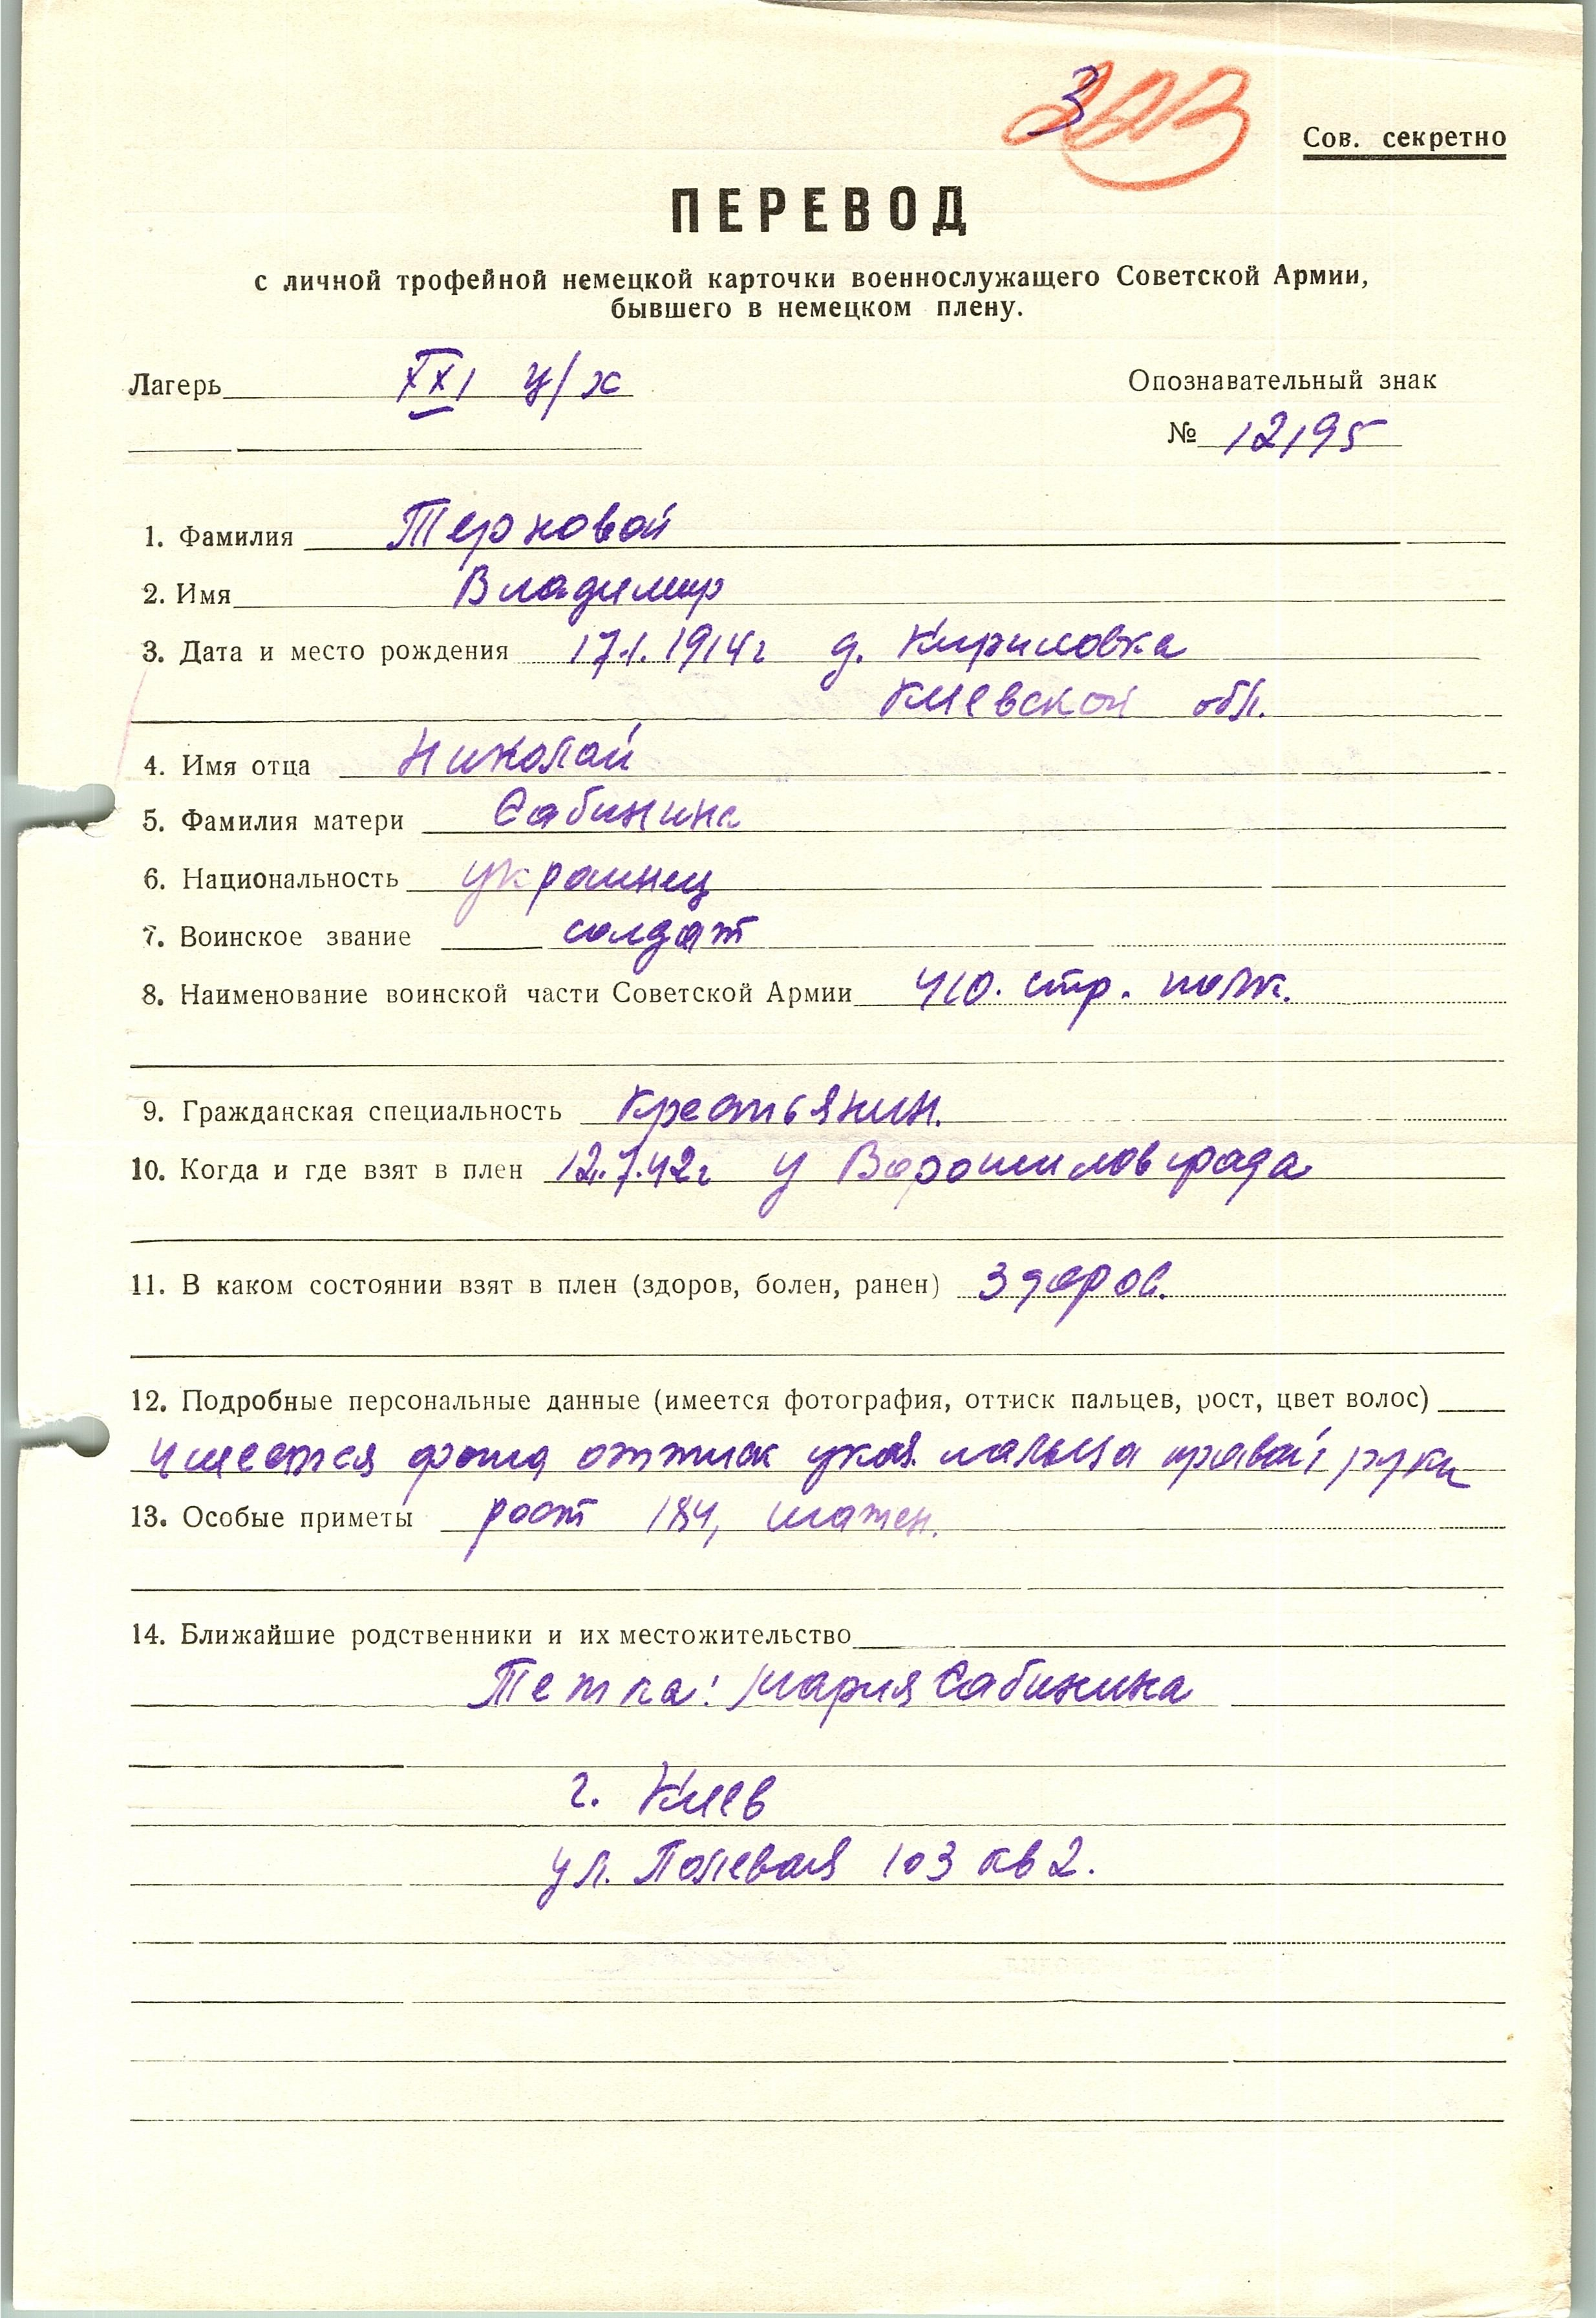 3
Сов. секретно
ПЕРЕВОД
с личной трофейной немецкой карточки военнослужащего Советской Армии,
бывшего в немецком плену.
Лагерь XXI ц/х
Опознавательный знак
№ 12195
1. Фамилия Терновой
2. Имя Владимир
3. Дата и место рождения 17.1.1914г д. Кириловка
Киевской обл.
4. Имя отца Николай
5. Фамилия матери Сабинина
6. Национальность украинец
7. Воинское звание солдат
8. Наименование воинской части Советской Армии 410. стр. полк.
9. Гражданская специальность крестьянин.
10. Когда и где взят в плен 12.7.42г у Ворошиловграда
11. В каком состоянии взят в плен (здоров, болен, ранен) здоров.
12. Подробные персональные данные (имеется фотография, оттиск пальцев, рост, цвет волос)
имеется фото, оттиск указ. пальца правой руки
13. Особые приметы рост 184, шатен.
14. Ближайшие родственники и их местожительство
Тетка: Мария Сабинина
г. Киев
ул. Полевая 103 кв 2.